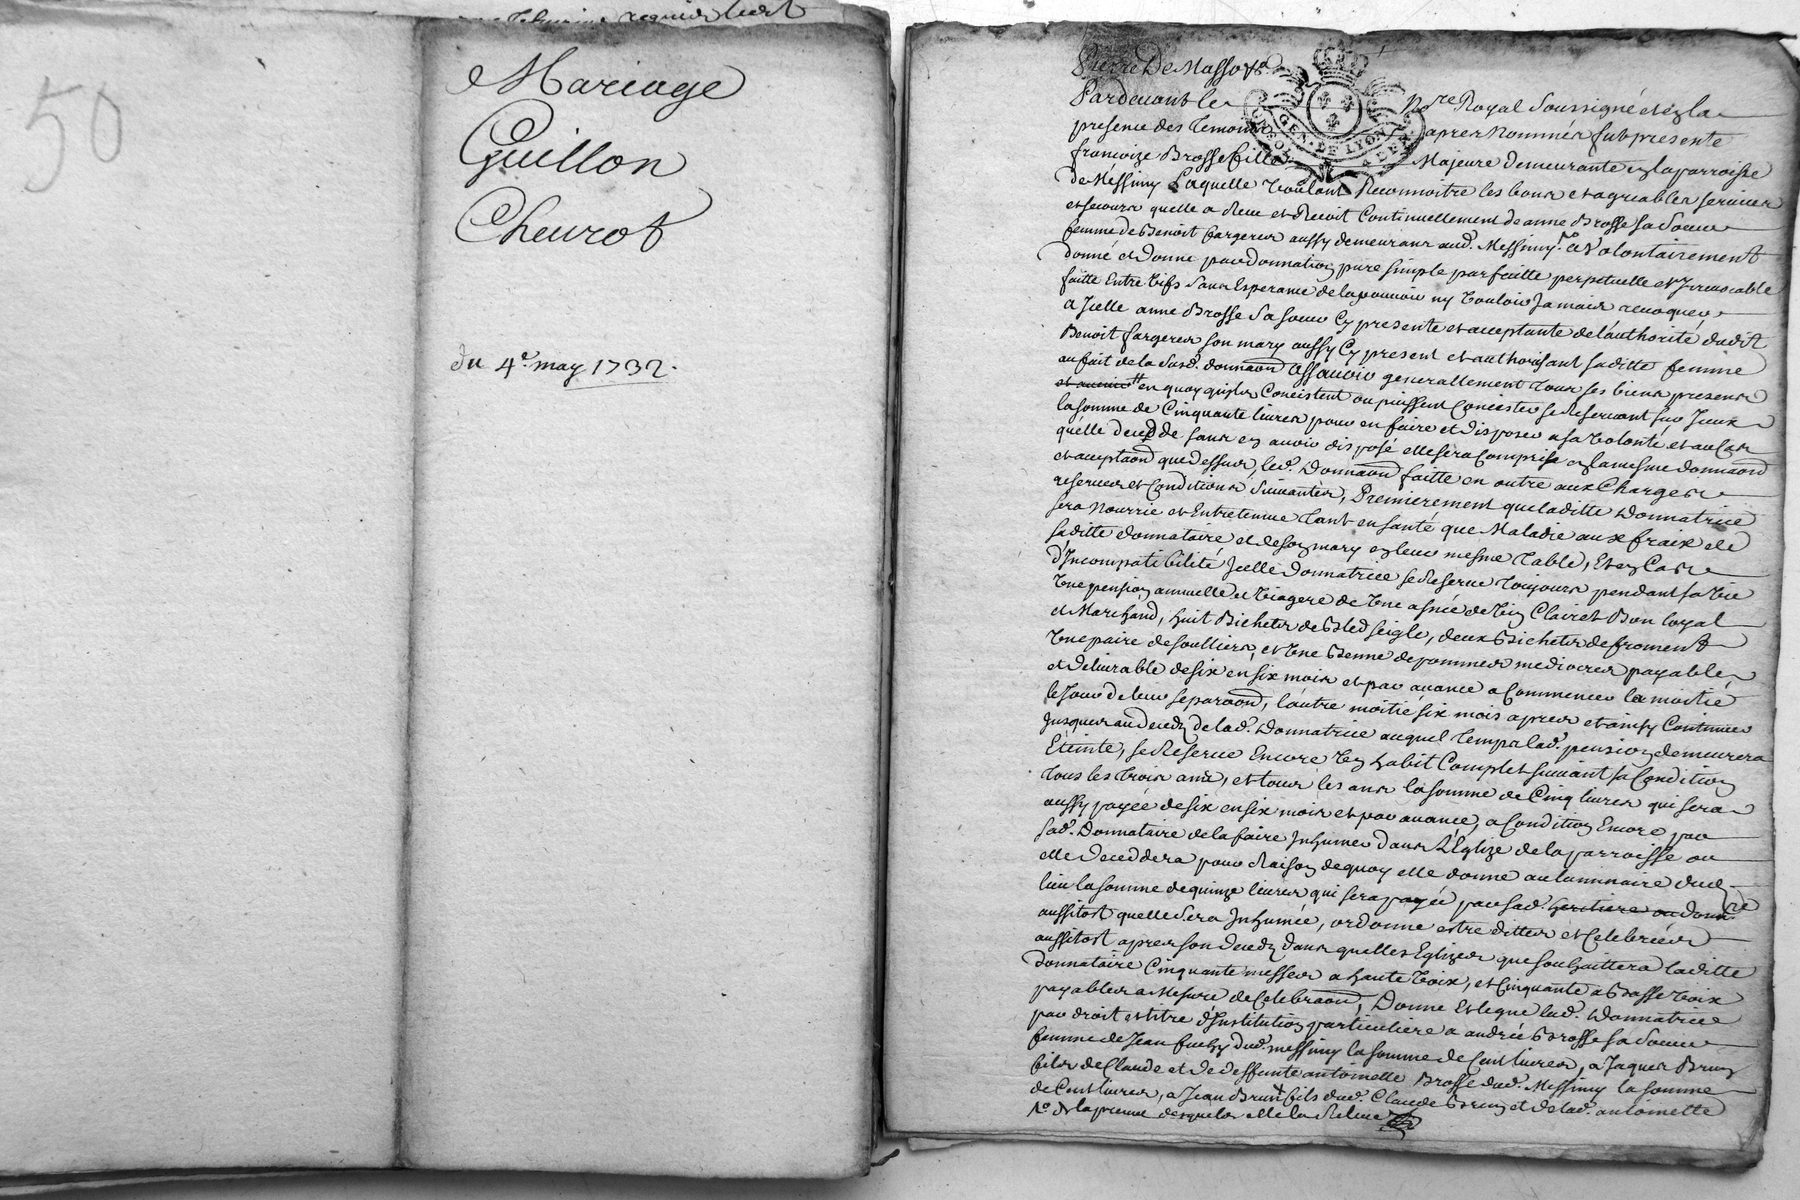 50
Mariage
Guillon
Cheurot
du 4e. may 1732.
Pierre De Masso &a.
Pardevant le Nre. Royal soussigné et en la
presence des temoins apres nommés fut presente
francoize Brosse fille Majeure demeurante en la parroisse
GEN. DE LYON
de Messimy Laquelle voulant Reconnoitre les bons et agreables services
et secours quelle a Reeu et Recoit Continuellement de anne Brosse sa soeur
femme de Benoit fargeres aussy demeurans aud. Messimy, a volontairement
donné et donne par donnation pure simple parfaitte perpetuelle et Irrevocable
faitte Entre vifs sans Esperance de la pouvoir ny vouloir Jamais revoquer
a Icelle anne Brosse sa soeur Cy presente et acceptante de l'authorité dudit
Benoit fargeres son mary aussy Cy present et authorisant saditte femme
au fait de la susd. donnaon assavoir generallement tous ses biens presens
en quoy quils Concistent ou puissent Concister se Reservant sur Iceux
la somme de Cinquante livres pour en faire et disposer a sa volonté, et au Cas
quelle decedde sans en avoir disposé elle sera Comprise en la mesme donnaon
et acceptaon que dessus, lad. Donnaon faitte en outre aux Charges
reserves et Conditions suivantes, Premierement que laditte Donnatrice
sera Nourrie et Entretenue tant en santé que Maladie aux fraix de
saditte donnataire et de son mary en leur mesme table, Et en Cas
d'Incompatibilité Icelle Donnatrice se Reserve toujours pendant sa vie
Une pension annuelle et viagere de Une asnée de vin Clairet Bon loyal
et Marchand, huit Bichets de Bled seigle, deux Bichets de froment
Une paire de soulliers, et Une Benne de pommes mediocres payable
et delivrable de six en six mois et par avance a Commencer la moitié
le Jour de leur separaon, l'autre moitié six mois apres et ainsy Continuer
Jusques au decedz de lad. Donnatrice auquel temps lad. pension demeurera
Eteinte, se Reserve Encore Un habit Complet suivant sa Condition
tous les trois ans, et tous les ans la somme de Cinq livres qui sera
aussy payée de six en six mois et par avance, a Condition Encore par
sad. Donnataire de la faire Inhumer dans L'Eglize de la parroisse ou
elle deceddera pour Raison de quoy elle donne au luminaire dud.
lieu la somme de quinze livres qui sera payée par sad. heritiere ou donnre
aussitost quelle sera Inhumée, ordonne estre dittes et Celebrées
aussitost apres son decedz dans quelles Eglizes que souhaittera laditte
donnataire Cinquante messes a haute voix, et Cinquante a Basse voix
payables a Mesure de Celebraon, Donne et legue lad. Donnatrice
par droit et titre d'Institution particuliere a andrée Brosse sa soeur
femme de Jean dud. messimy la somme de Cent livres, a Jaques Brun
fils de Claude et de deffunte antoinette Brosse dud. Messimy la somme
de Cent livres, a Jean Brun fils dud. Claude Brun et de lad. antoinette